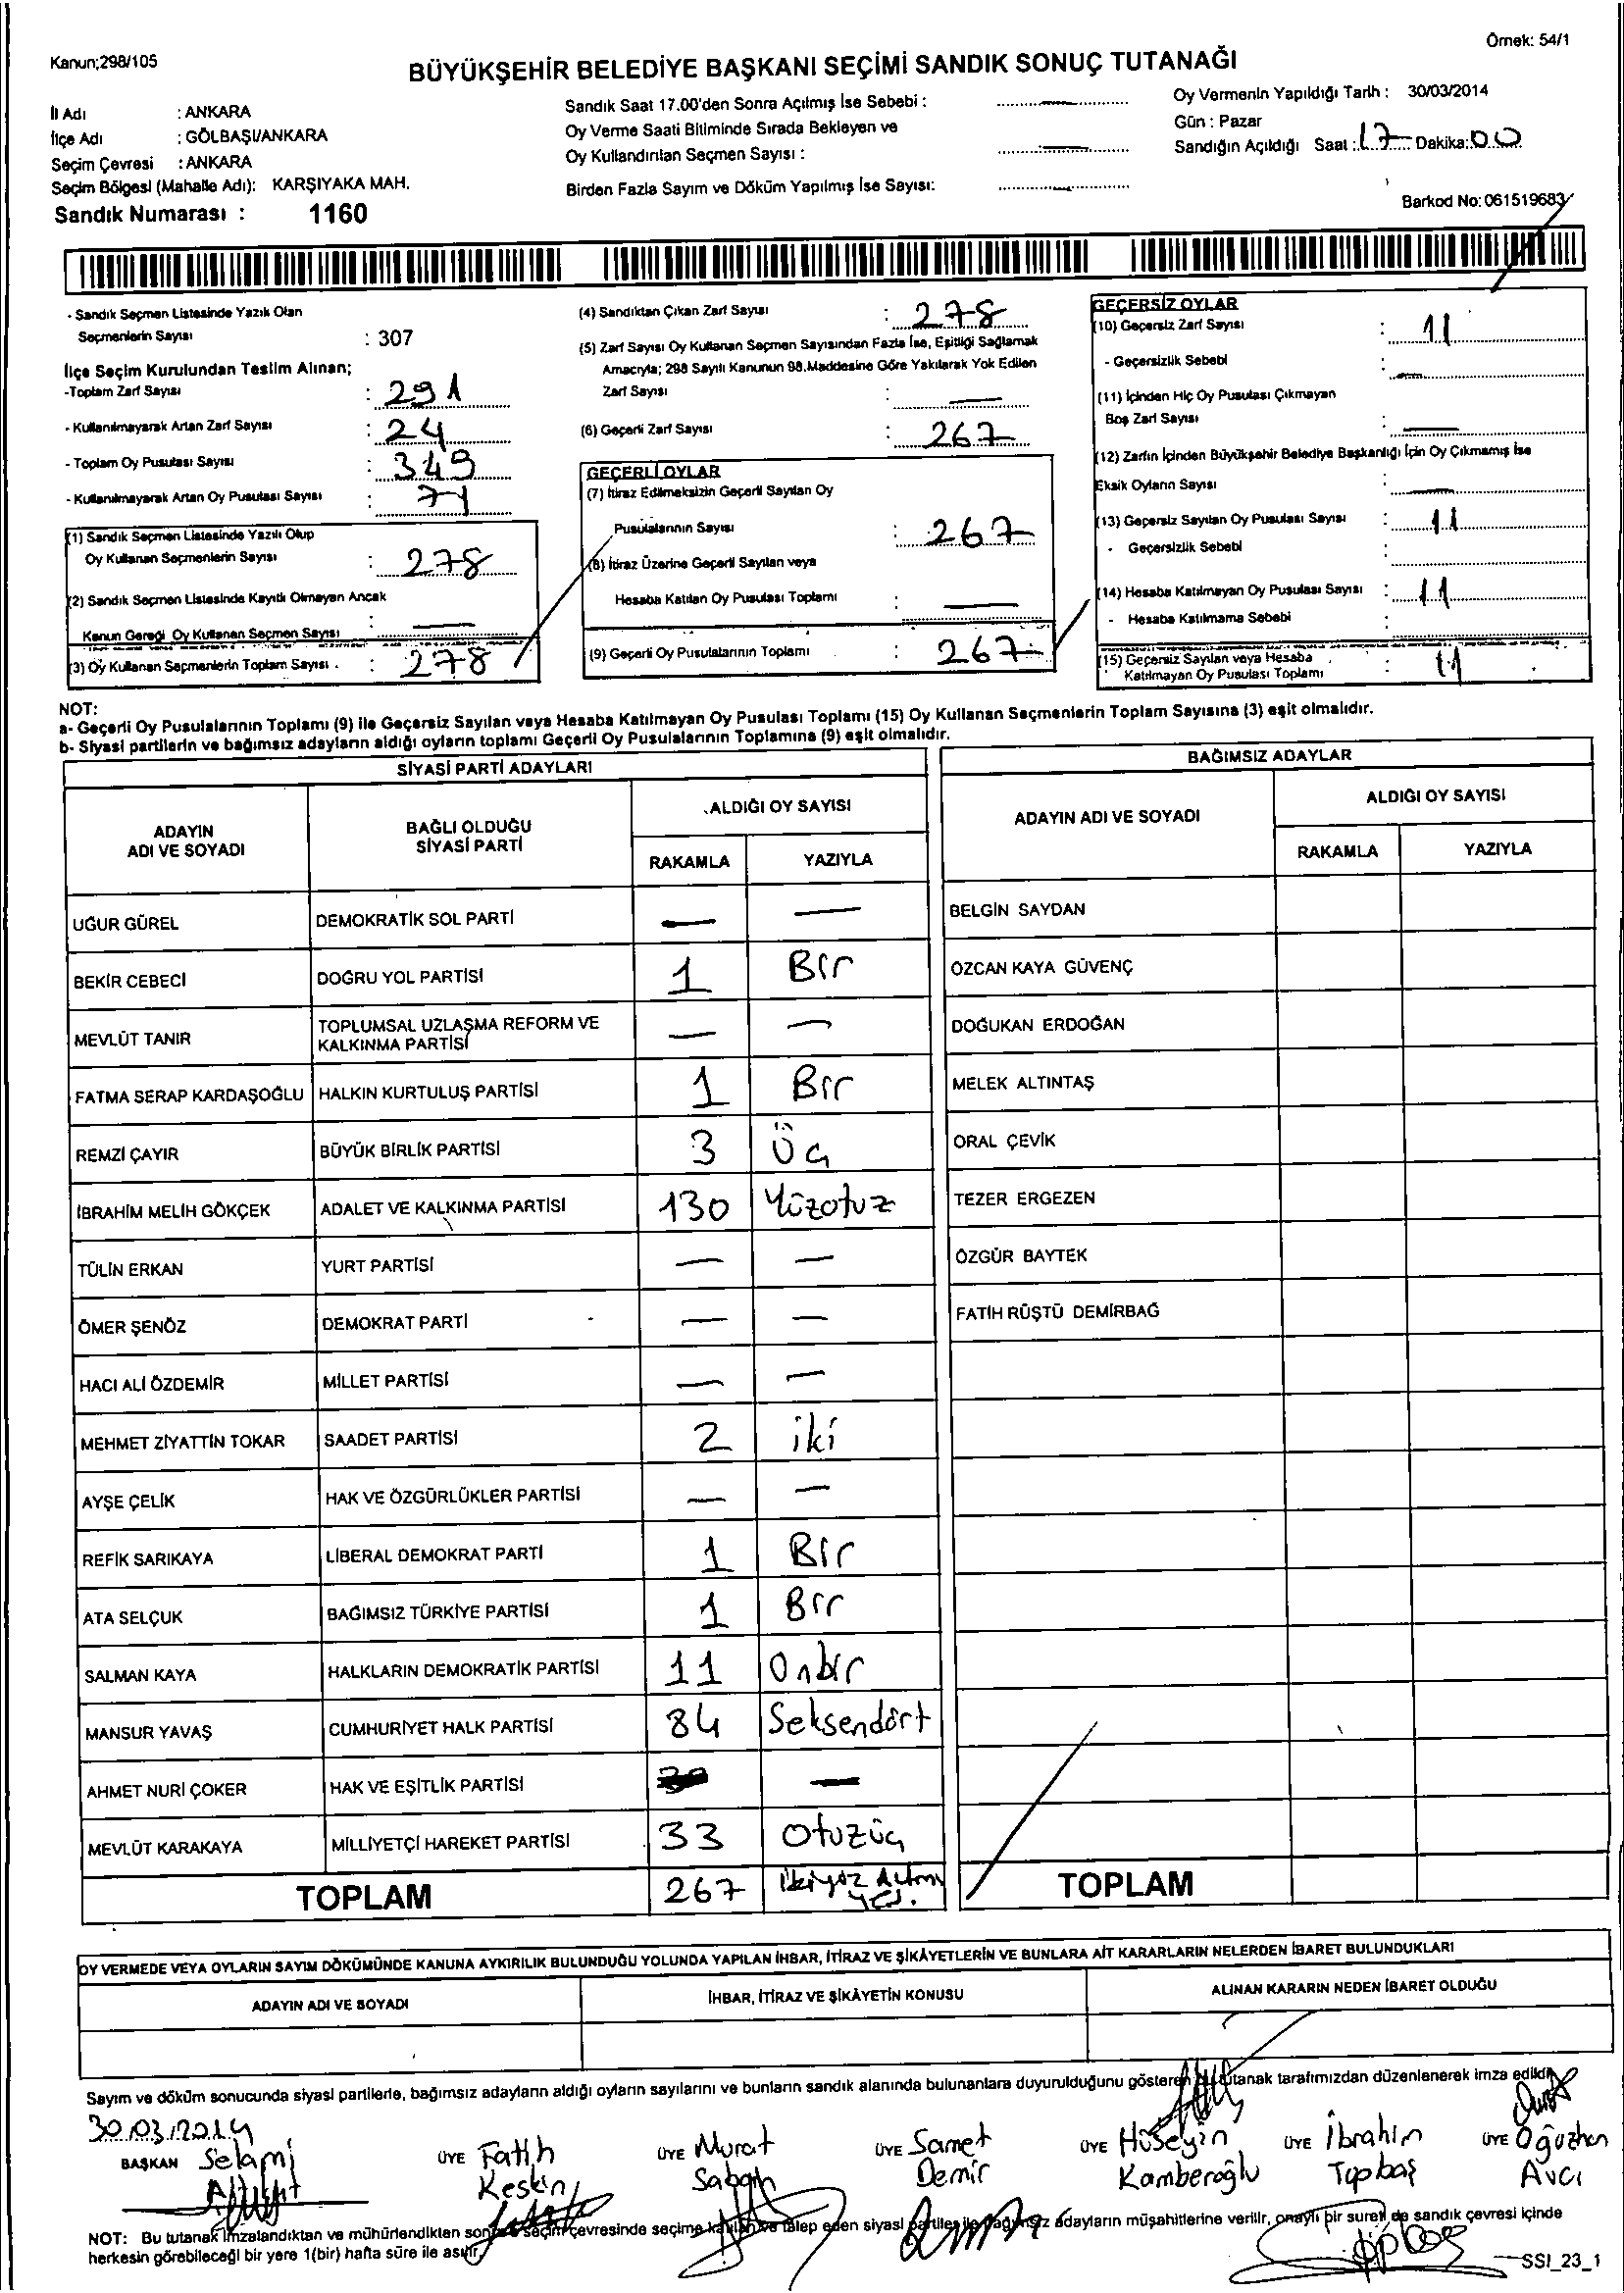 Kanun;298/105
Örnek: 54/1
BÜYÜKŞEHİR BELEDİYE BAŞKANI SEÇİMİ SANDIK SONUÇ TUTANAĞI
İl Adı : ANKARA
İlçe Adı : GÖLBAŞI/ANKARA
Seçim Çevresi : ANKARA
Seçim Bölgesi (Mahalle Adı): KARŞIYAKA MAH.
Sandık Numarası : 1160
Sandık Saat 17.00'den Sonra Açılmış İse Sebebi :
Oy Verme Saati Bitiminde Sırada Bekleyen ve
Oy Kullandırılan Seçmen Sayısı :
Birden Fazla Sayım ve Döküm Yapılmış İse Sayısı:
Oy Vermenin Yapıldığı Tarih : 30/03/2014
Gün : Pazar
Sandığın Açıldığı Saat : 17 Dakika: 00
Barkod No: 061519683
- Sandık Seçmen Listesinde Yazılı Olan
Seçmenlerin Sayısı : 307
İlçe Seçim Kurulundan Teslim Alınan;
-Toplam Zarf Sayısı : 291
- Kullanılmayarak Artan Zarf Sayısı : 24
- Toplam Oy Pusulası Sayısı : 349
- Kullanılmayarak Artan Oy Pusulası Sayısı : 71
(1) Sandık Seçmen Listesinde Yazılı Olup
Oy Kullanan Seçmenlerin Sayısı : 278
(2) Sandık Seçmen Listesinde Kayıtlı Olmayan Ancak
Kanun Gereği Oy Kullanan Seçmen Sayısı : —
(3) Oy Kullanan Seçmenlerin Toplam Sayısı . : 278
(4) Sandıktan Çıkan Zarf Sayısı : 278
(5) Zarf Sayısı Oy Kullanan Seçmen Sayısından Fazla İse, Eşitliği Sağlamak
Amacıyla; 298 Sayılı Kanunun 98.Maddesine Göre Yakılarak Yok Edilen
Zarf Sayısı : —
(6) Geçerli Zarf Sayısı : 267
GEÇERLİ OYLAR
(7) İtiraz Edilmeksizin Geçerli Sayılan Oy
Pusulalarının Sayısı : 267
(8) İtiraz Üzerine Geçerli Sayılan veya
Hesaba Katılan Oy Pusulası Toplamı : —
(9) Geçerli Oy Pusulalarının Toplamı : 267
GEÇERSİZ OYLAR
(10) Geçersiz Zarf Sayısı : 11
- Geçersizlik Sebebi : —
(11) İçinden Hiç Oy Pusulası Çıkmayan
Boş Zarf Sayısı : —
(12) Zarfın İçinden Büyükşehir Belediye Başkanlığı İçin Oy Çıkmamış İse
Eksik Oyların Sayısı : —
(13) Geçersiz Sayılan Oy Pusulası Sayısı : 11
- Geçersizlik Sebebi :
(14) Hesaba Katılmayan Oy Pusulası Sayısı : 11
- Hesaba Katılmama Sebebi :
(15) Geçersiz Sayılan veya Hesaba
Katılmayan Oy Pusulası Toplamı : 11
NOT:
a- Geçerli Oy Pusulalarının Toplamı (9) ile Geçersiz Sayılan veya Hesaba Katılmayan Oy Pusulası Toplamı (15) Oy Kullanan Seçmenlerin Toplam Sayısına (3) eşit olmalıdır.
b- Siyasi partilerin ve bağımsız adayların aldığı oyların toplamı Geçerli Oy Pusulalarının Toplamına (9) eşit olmalıdır.
SİYASİ PARTİ ADAYLARI
ADAYIN ADI VE SOYADI BAĞLI OLDUĞU SİYASİ PARTİ ALDIĞI OY SAYISI
RAKAMLA YAZIYLA
UĞUR GÜREL DEMOKRATİK SOL PARTİ — —
BEKİR CEBECİ DOĞRU YOL PARTİSİ 1 Bir
MEVLÜT TANIR TOPLUMSAL UZLAŞMA REFORM VE KALKINMA PARTİSİ — —
FATMA SERAP KARDAŞOĞLU HALKIN KURTULUŞ PARTİSİ 1 Bir
REMZİ ÇAYIR BÜYÜK BİRLİK PARTİSİ 3 Üç
İBRAHİM MELİH GÖKÇEK ADALET VE KALKINMA PARTİSİ 130 Yüzotuz
TÜLİN ERKAN YURT PARTİSİ — —
ÖMER ŞENÖZ DEMOKRAT PARTİ — —
HACI ALİ ÖZDEMİR MİLLET PARTİSİ — —
MEHMET ZİYATTİN TOKAR SAADET PARTİSİ 2 iki
AYŞE ÇELİK HAK VE ÖZGÜRLÜKLER PARTİSİ — —
REFİK SARIKAYA LİBERAL DEMOKRAT PARTİ 1 Bir
ATA SELÇUK BAĞIMSIZ TÜRKİYE PARTİSİ 1 Bir
SALMAN KAYA HALKLARIN DEMOKRATİK PARTİSİ 11 Onbir
MANSUR YAVAŞ CUMHURİYET HALK PARTİSİ 84 Seksendört
AHMET NURİ ÇOKER HAK VE EŞİTLİK PARTİSİ —
MEVLÜT KARAKAYA MİLLİYETÇİ HAREKET PARTİSİ 33 Otuzüç
TOPLAM 267 ikiyüz Altmı yedi.
BAĞIMSIZ ADAYLAR
ADAYIN ADI VE SOYADI ALDIĞI OY SAYISI
RAKAMLA YAZIYLA
BELGİN SAYDAN
ÖZCAN KAYA GÜVENÇ
DOĞUKAN ERDOĞAN
MELEK ALTINTAŞ
ORAL ÇEVİK
TEZER ERGEZEN
ÖZGÜR BAYTEK
FATİH RÜŞTÜ DEMİRBAĞ
TOPLAM
OY VERMEDE VEYA OYLARIN SAYIM DÖKÜMÜNDE KANUNA AYKIRILIK BULUNDUĞU YOLUNDA YAPILAN İHBAR, İTİRAZ VE ŞİKÂYETLERİN VE BUNLARA AİT KARARLARIN NELERDEN İBARET BULUNDUKLARI
ADAYIN ADI VE SOYADI İHBAR, İTİRAZ VE ŞİKÂYETİN KONUSU ALINAN KARARIN NEDEN İBARET OLDUĞU
Sayım ve döküm sonucunda siyasi partilerle, bağımsız adayların aldığı oyların sayılarını ve bunların sandık alanında bulunanlara duyurulduğunu gösteren tutanak tarafımızdan düzenlenerek imza edildi.
30.03.2014
BAŞKAN Selami
ÜYE Fatih Keskin
ÜYE Murat Saban
ÜYE Samet Demir
ÜYE Hüseyin Kamberoğlu
ÜYE İbrahim Topbaş
ÜYE Oğuzhan Avcı
NOT: Bu tutanak imzalandıktan ve mühürlendikten sonra seçim çevresinde seçime katılan ve talep eden siyasi partiler ile bağımsız adayların müşahitlerine verilir, onaylı bir sureti de sandık çevresi içinde
herkesin görebileceği bir yere 1(bir) hafta süre ile asılır.
SSI_23_1